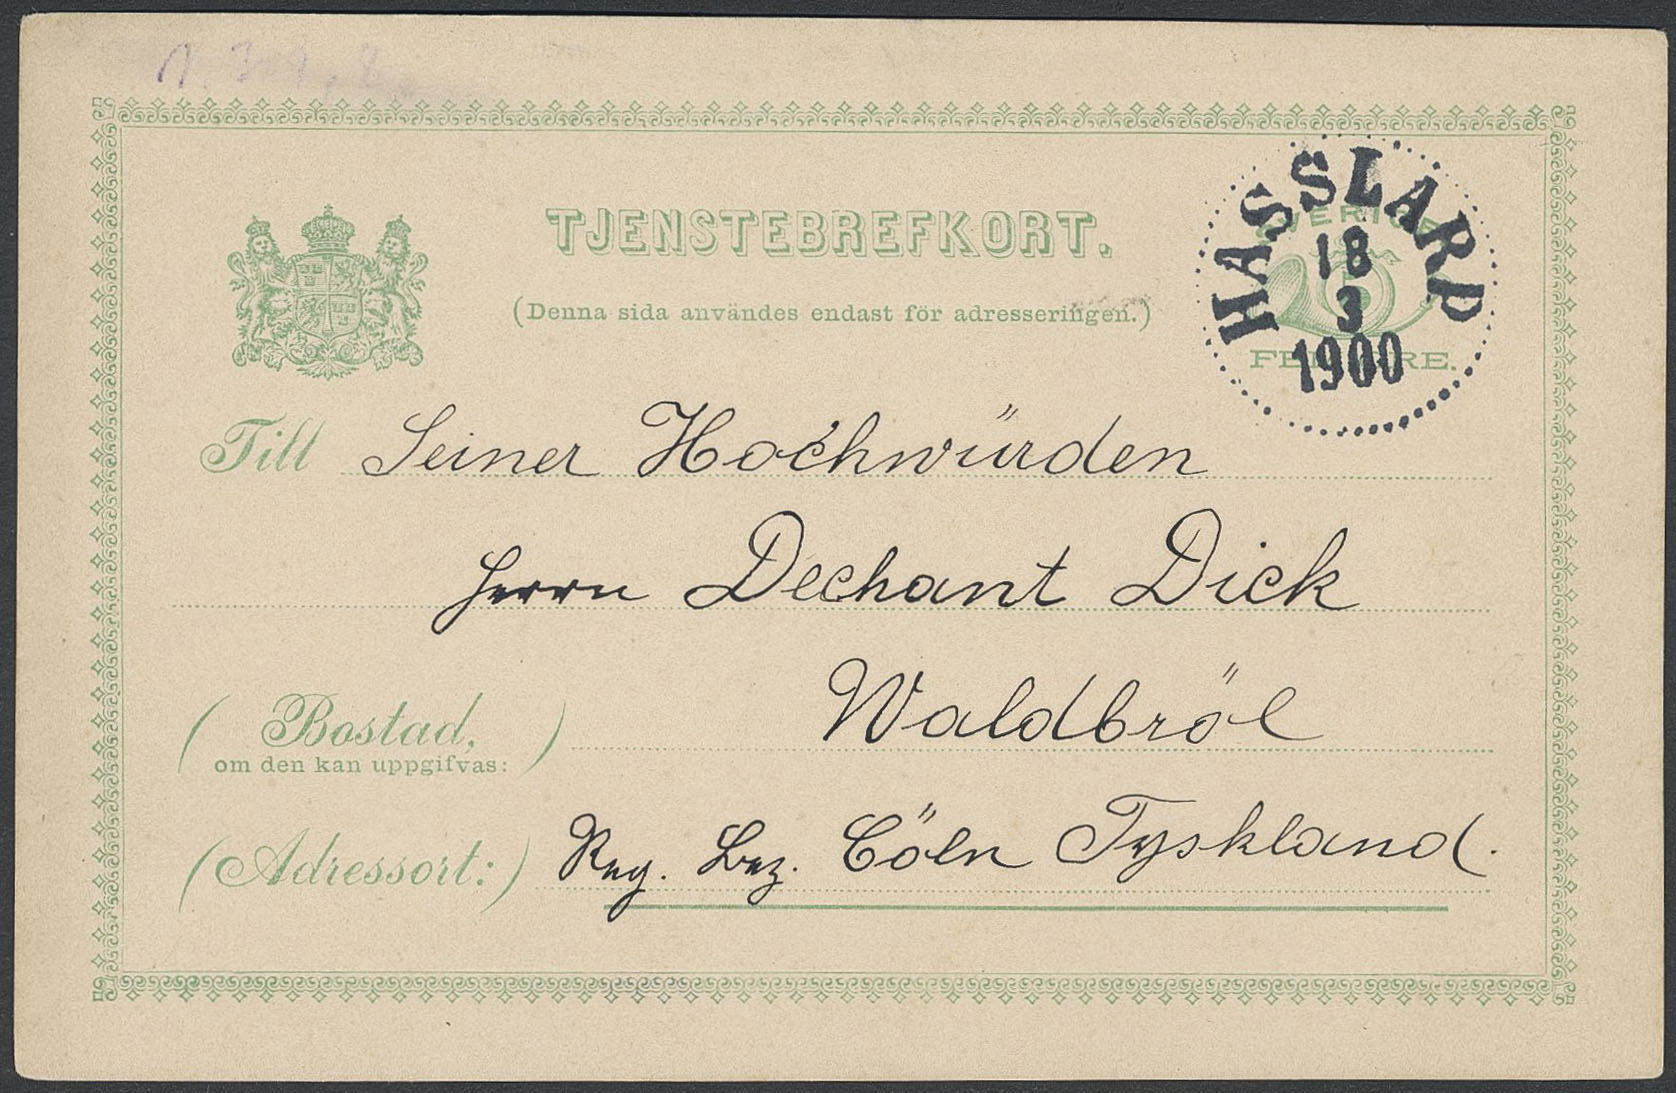 TJENSTEBREFKORT.
(Denna sida användes endast för adresseringen.)
HASSLARP
18
3
1900
Till Seiner Hochwürden
Herrn Dechant Dick
Waldbröl
(Bostad,
om den kan uppgifvas:)
(Adressort:) Reg. Bez. Cöln Tyskland.